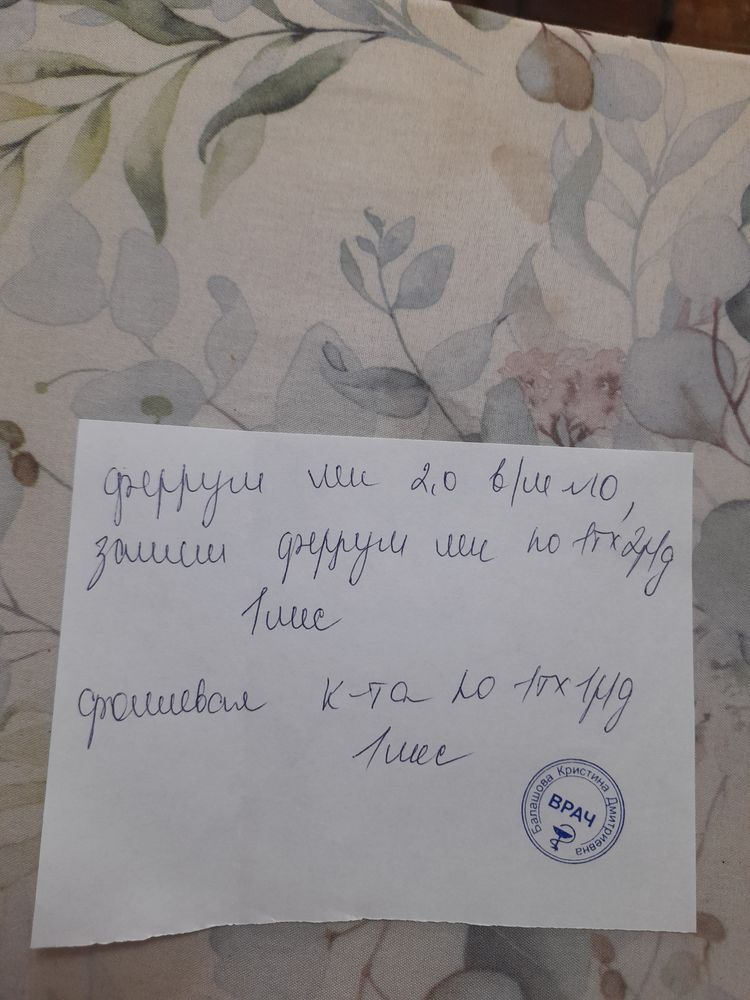 феррум лек 2,0 в/м №10,
затем феррум лек по 1т х 2р/д
1 мес
фолиевая к-та по 1т х 1р/д
1 мес
Балашова Кристина Дмитриевна
ВРАЧ